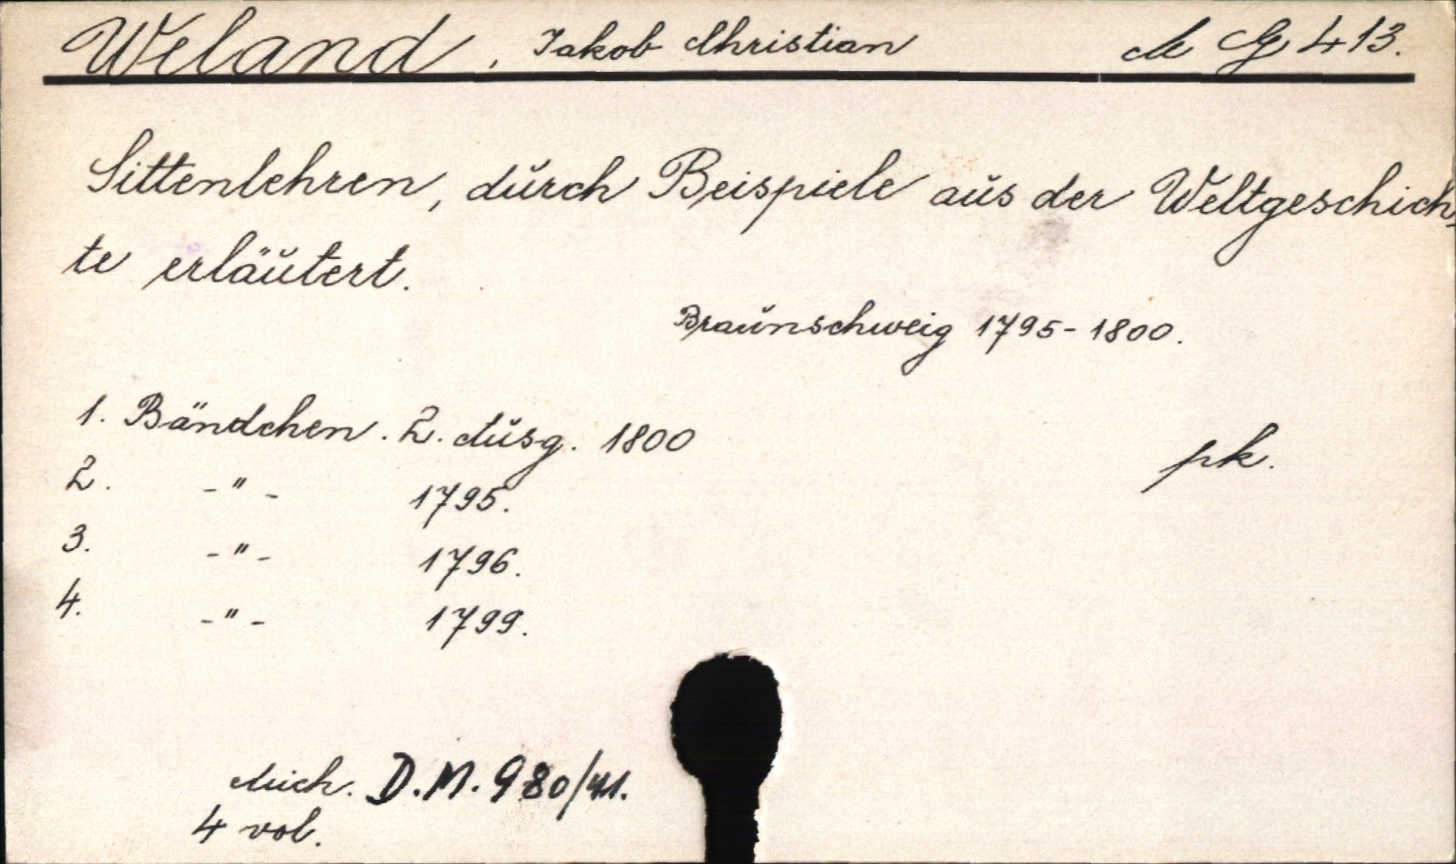 Weland, Jakob Christian A G 413.
Sittenlehren, durch Beispiele aus der Weltgeschich-
te erläutert.
Braunschweig 1795-1800.
1. Bändchen. 2. Ausg. 1800
pk.
2. -"- 1795.
3. -"- 1796.
4. -"- 1799.
D.M. 980/41.
4 vol.